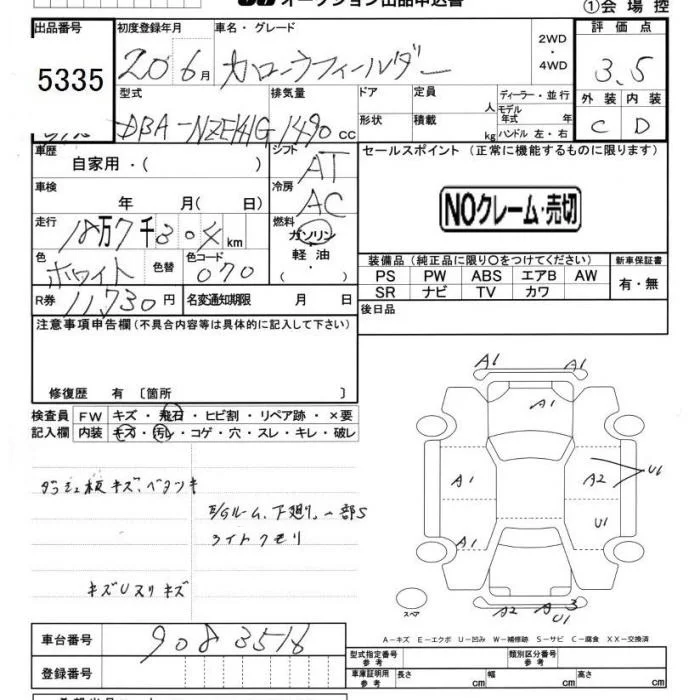 オークション出品申込書
①会場控
出品番号
5335
初度登録年月
20 6月
車名・グレード
カローラフィールダー
2WD
・
4WD
評価点
3.5
外装 内装
C D
型式
DBA-NZE141G
排気量
1490 CC
ドア
形状
定員
人
積載
kg
ディーラー・並行
モデル年式 年
ハンドル 左・右
車歴
自家用・( )
シフト
AT
セールスポイント (正常に機能するものに限ります)
NOクレーム・売切
車検
年 月( 日)
冷房
AC
走行
18万7千 km
燃料
ガソリン
軽油
( )
色
ホワイト
色替
色コード
070
装備品 (純正品に限り○をつけてください)
新車保証書
PS PW ABS エアB AW
SR ナビ TV カワ
有・無
R券
11,730円
名変通知期限 月 日
後日品
注意事項申告欄(不具合内容等は具体的に記入して下さい)
修復歴 有 〔箇所 〕
検査員
記入欄
FW キズ・飛石・ヒビ割・リペア跡・×要
内装 キズ・汚レ・コゲ・穴・スレ・キレ・破レ
ダッシュ板キズ、ベタツキ
E/Gルーム、下廻り、一部S
ライトクモリ
キズUスリキズ
A1 A1
A1
A1 A2 U1
U1
A1
スペ
A2 A3
U1
A−キズ E−エクボ U−凹み W−補修跡 S−サビ C−腐食 XX−交換済
車台番号
9083518
登録番号
型式指定番号
参考
類別区分番号
参考
車庫証明用
参考
長さ cm
幅 cm
高さ cm